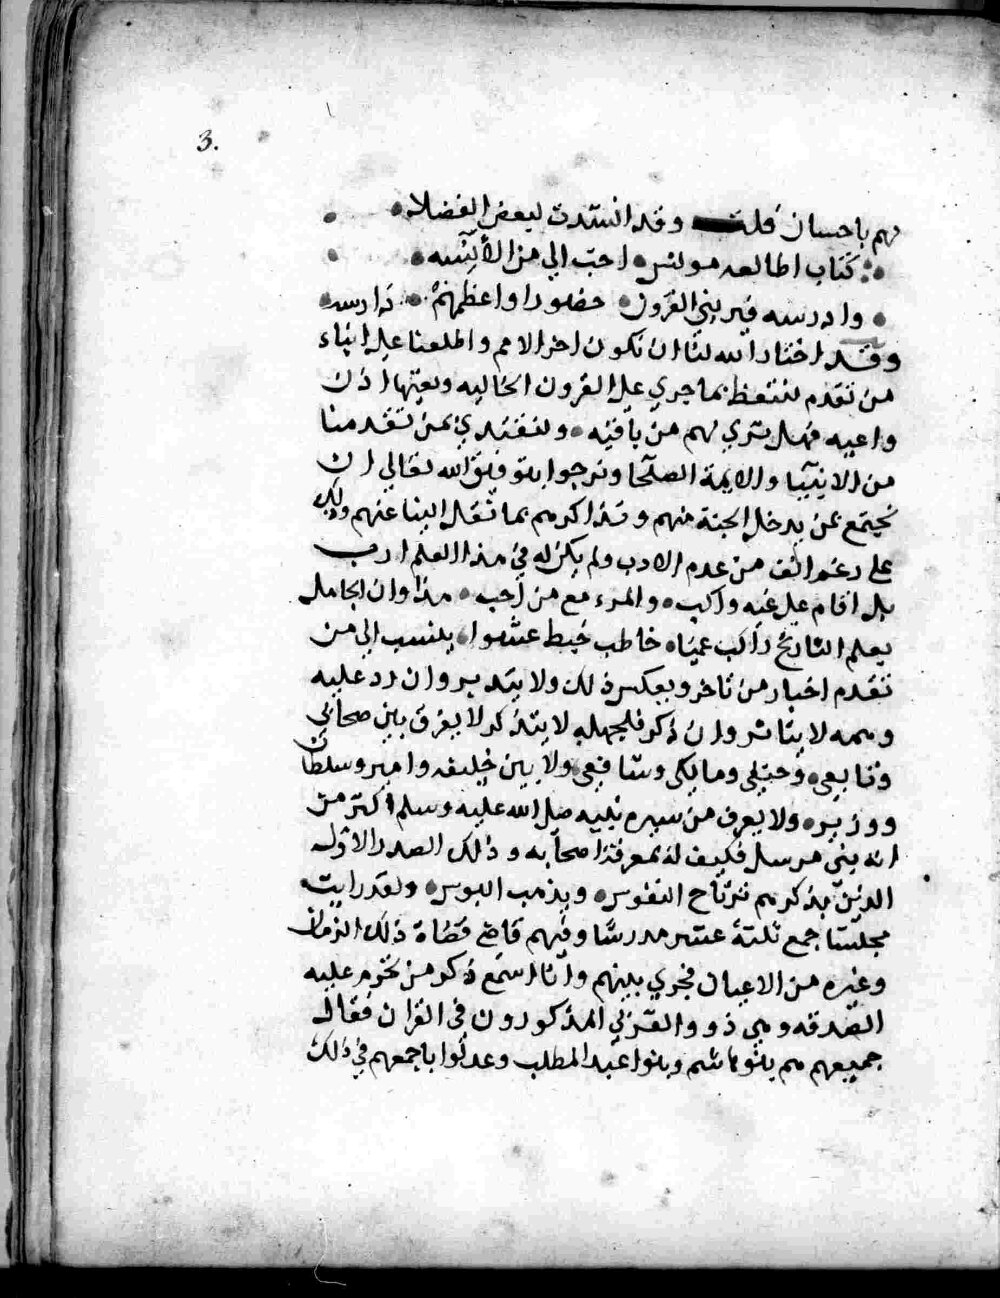 3.
نهم باحسان قلت وقد انشدت لبعض الفضلاء
كتاب اطالعه مونس احب الي من الآنسه
وادرسه فيريني القرون حضورا واعظمهم دارسه
وقد اختار الله لنا ان نكون اخر الامم واطلعنا على انباء
من تقدم لنتعظ بما جري على القرون الخاليه وتعيها اذن
واعيه فهل تري لهم من باقيه ولنقتدي بمن تقدمنا
من الانبيا والايمة الصلحا ونرجوا بتوفيق الله تعالي ان
نجتمع بمن يدخل الجنة منهم ونذاكرهم بما نقل الينا عنهم وذلك
على رغم انف من عدم الادب ولم يكن له في هذا العلم ارب
بل اقام على غيه واكب والمرء مع من احب هذا وان الجاهل
بعلم التاريخ راكب عمياه خاطب خبط عشوا ينسب الي من
تقدم اخبار من تاخر ويعكس ذلك ولا يتدبر وان رد عليه
وهمه لا يتاثر وان ذكر فلجهله لا يتذكر لا يفرق بين صحابي
وتابعي وحنبلي ومالكي وشافعي ولا بين خليفه وامير وسلطان
ووزير ولا يعرف من سيره نبيه صلى الله عليه وسلم اكثر من
انه نبي مرسل فكيف له بمعرفة اصحابه وذلك الصدر الاول
الذين بذكرهم ترتاح النفوس ويذهب البوس ولقد رايت
مجلسا جمع ثلثة عشر مدرسا وفيهم قاضي قضاة ذلك الزمان
وغيره من الاعيان فجري بينهم وانا اسمع ذكر من تحرم عليه
الصدقه وهي ذوو القربي المذكورون في القران فقال
جميعهم هم بنو هاشم وبنوا عبد المطلب وعدلوا باجمعهم في ذلك